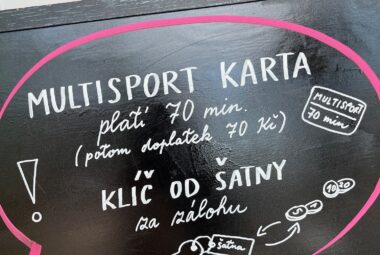 MULTISPORT KARTA
platí 70 min.
(potom doplatek 70 Kč)
MULTISPORT
70 min
!
KLÍČ OD ŠATNY
za zálohu
10 20
5
šatna